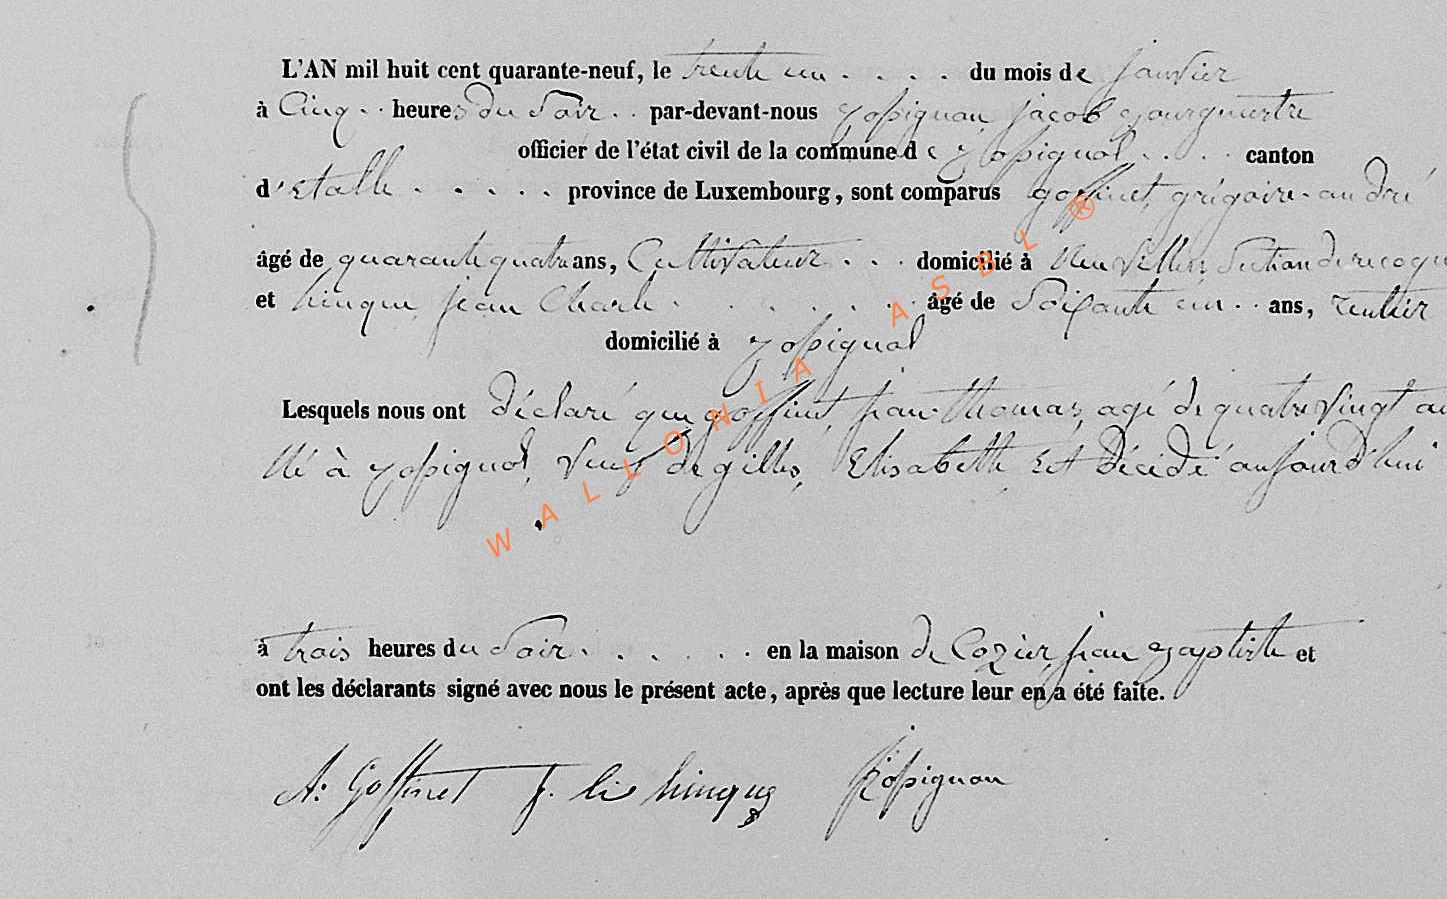 L'AN mil huit cent quarante-neuf, le trente un . . . . du mois de janvier
à Cinq . . heures du Soir . . par-devant-nous rossignon jacob Bourgumestre
officier de l'état civil de la commune de rossignol . . . . canton
d'Etalle . . . . . province de Luxembourg, sont comparus goffinet, grégoire-andré
âgé de quarante quatre ans, Cultivateur . . . domicilié à Neuvillers Section de recogne
et hinque jean Charle . . . . . . . âgé de Soixante un . . ans, rentier
domicilié à rossignol
Lesquels nous ont déclaré que goffinet, jean-thomas, agé de quatre vingt an
Né à rossignol, veuf de gilles, Elisabeth, Est décédé aujourd'hui
à trois heures du Soir . . . . . . en la maison de Cozier jean Baptiste et
ont les déclarants signé avec nous le présent acte, après que lecture leur en a été faite.
A: Goffinet J. Ch hinque Rossignon
WALLONIA ASBL ®